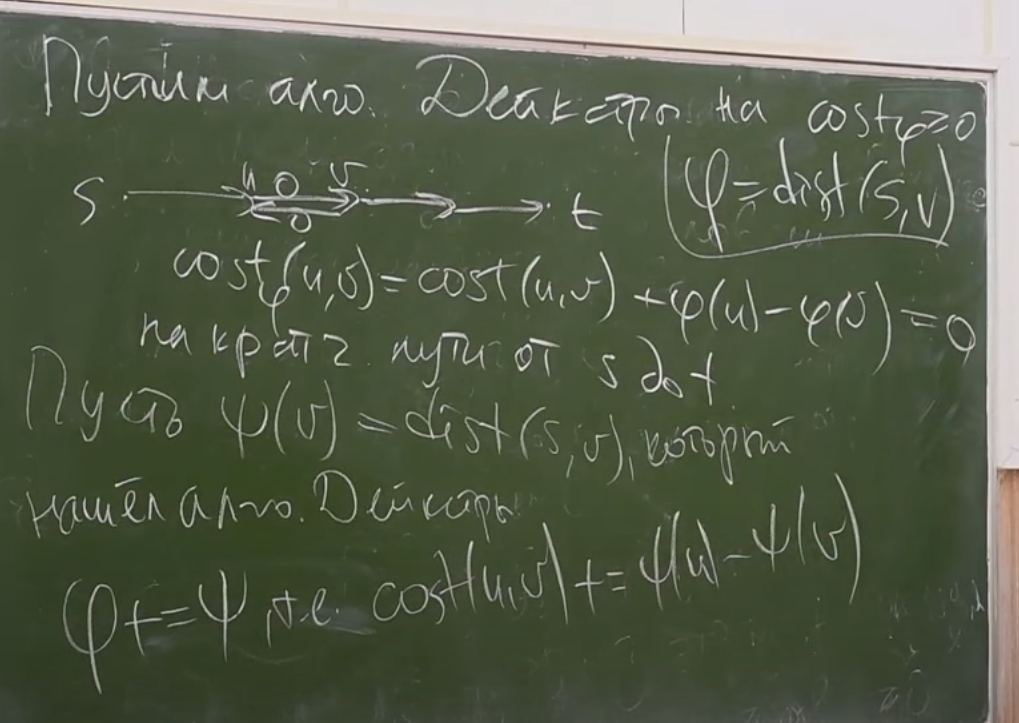 Пустим алго. Дейкстры на cost_φ≥0
φ=dist(s,v)
s u 0 v 0 t
cost_φ(u,v)=cost(u,v)+φ(u)-φ(v)=0
на кратч. пути от s до t
Пусть ψ(v)=dist(s,v), который
нашёл алго. Дейкстры
φ+=ψ, т.е. cost(u,v)+=ψ(u)-ψ(v)